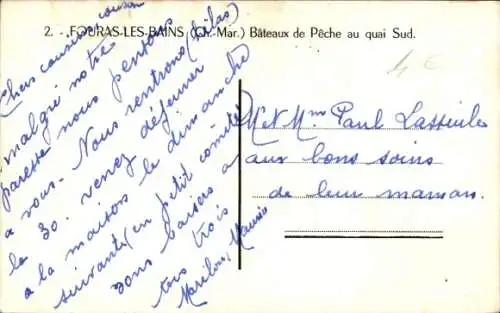 2. - FOURAS-LES-BAINS (Ch.-Mar.) Bâteaux de Pêche au quai Sud.
4 €
Chers cousine cousin
malgré notre
paresse nous pensons
a vous. Nous rentrons (hélas)
le 30. venez déjeuner
a la maison le dimanche
suivante (en petit comité)
bons baisers a
tous trois
Marilou, Maurice
M et Mme Paul Lasseule
aux bons soins
de leur maman.